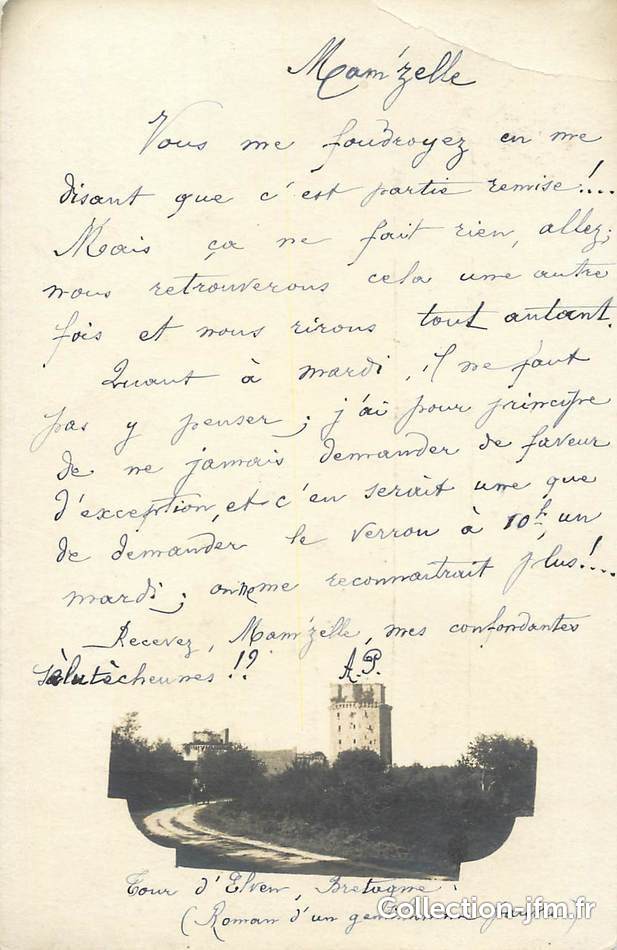 Mam'zelle
Vous me foudroyez en me
disant que c'est partie remise!...
Mais ça ne fait rien, allez;
nous retrouverons cela une autre
fois et nous rirons tout autant.
Quant à mardi, il ne faut
pas y penser; j'ai pour principe
de ne jamais demander de faveur
d'exception, et c'en serait une que
de demander le verrou à 10h un
mardi; on ne me reconnaitrait plus!...
Recevez, Mam'zelle, mes confondantes
salutècheunes!!?
A.P.
Tour d'Elven, Bretagne.
(Roman d'un
Collection-jfm.fr